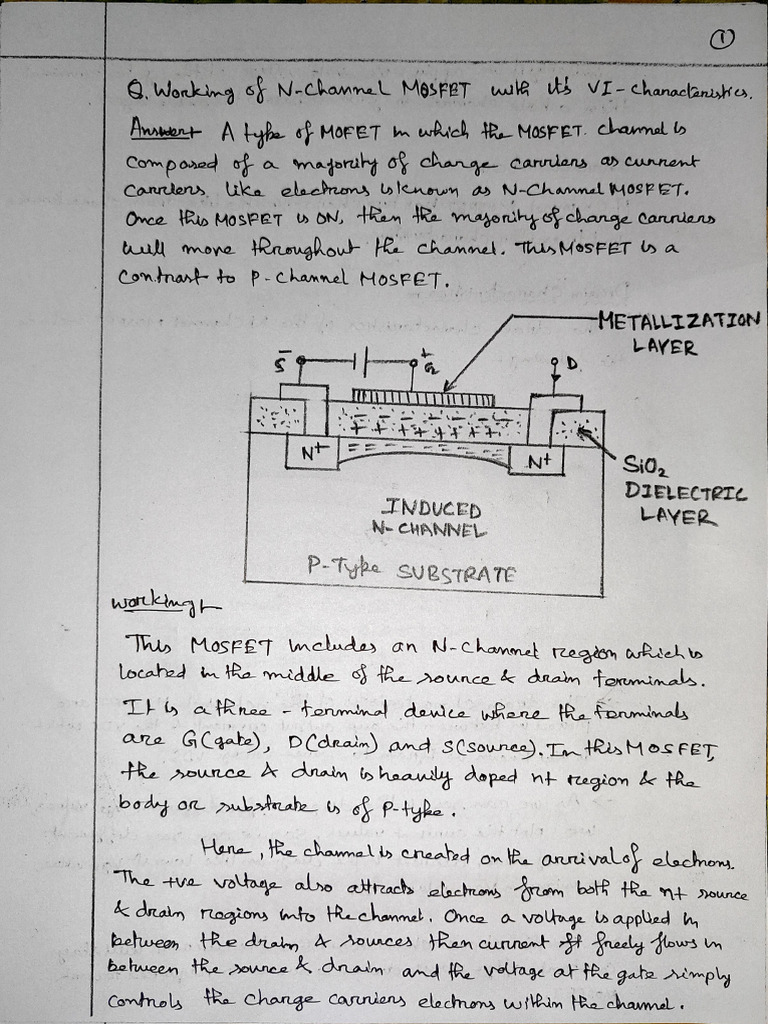 1
Q. Working of N-Channel MOSFET with it's VI-Characteristics.
Answer A type of MOFET in which the MOSFET channel is
composed of a majority of charge carriers as current
carriers, like electrons is known as N-Channel MOSFET.
Once this MOSFET is ON, then the majority of charge carriers
will move throughout the channel. This MOSFET is a
contrast to P-channel MOSFET.
METALLIZATION
LAYER
- S + G D
- - - - - - -
+ + + + + + + +
N+ N+
SiO2
DIELECTRIC
LAYER
INDUCED
N-CHANNEL
P-Type SUBSTRATE
Working
This MOSFET includes an N-channel region which is
located in the middle of the source & drain terminals.
It is a three-terminal device where the terminals
are G(gate), D(drain) and S(source). In this MOSFET,
the source & drain is heavily doped n+ region & the
body or substrate is of P-type.
Here, the channel is created on the arrival of electrons.
The +ve voltage also attracts electrons from both the n+ source
& drain regions into the channel. Once a voltage is applied in
between the drain & sources then current freely flows in
between the source & drain and the voltage at the gate simply
controls the charge carriers electrons within the channel.